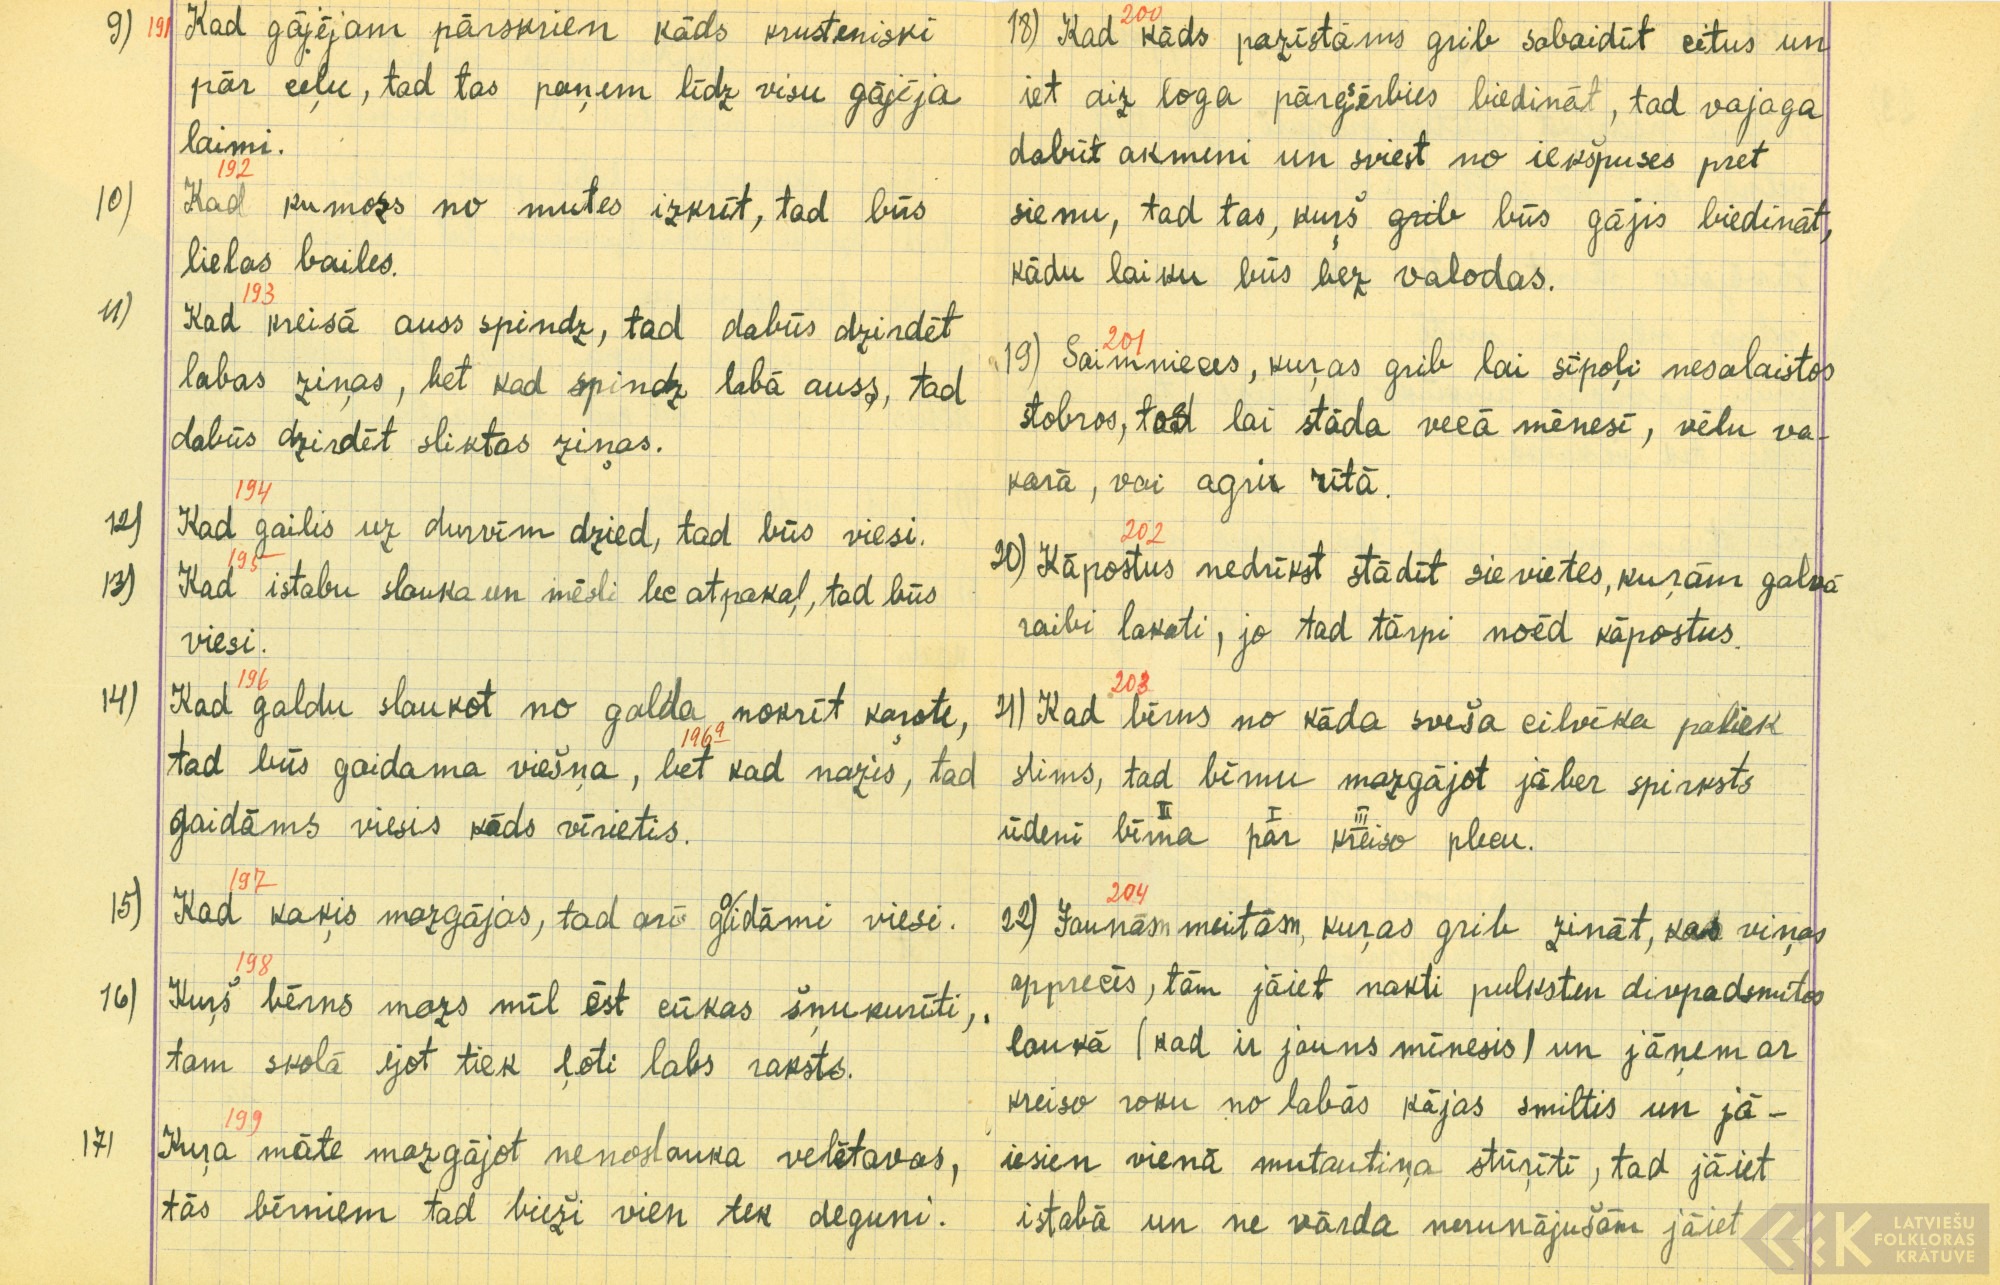 9) 191 Kad gājējam pārskrien kāds krusteniski
pār ceļu, tad tas paņem līdz visu gājēja
laimi.
192
10) Kad kumoss no mutes izkrīt, tad būs
lielas bailes.
193
11) Kad kreisā auss spindz, tad dabūs dzirdēt
labas ziņas, bet kad spindz labā auss, tad
dabūs dzirdēt sliktas ziņas.
194
12) Kad gailis uz durvīm dzied, tad būs viesi.
195
13) Kad istabu slauka un mēsli be atpakaļ, tad būs
viesi.
196
14) Kad galdu slaukot no galda nokrīt karote,
196a
tad būs gaidama viešņa, bet kad nazis, tad
gaidāms viesis kāds vīrietis.
197
15) Kad kaķis mazgājas, tad arī gaidāmi viesi.
198
16) Kuŗš bērns mazs mīl ēst cūkas šņukurīti,
tam skolā ejot tiek ļoti labs raksts.
199
17) Kuŗa māte mazgājot nenoslauka velētavas,
tās bērniem tad bieži vien tek deguni.
200
18) Kad kāds pazīstāms grib sabaidīt citus un
iet aiz loga pārģērbies biedināt, tad vajaga
dabūt akmeni un sviest no iekšpuses pret
sienu, tad tas, kuŗš grib būs gājis biedināt,
kādu laiku būs bez valodas.
201
19) Saimnieces, kuŗas grib lai sīpoļi nesalaistos
stobros, tad lai stāda vecā mēnesī, vēlu va-
karā, vai agri rītā.
202
20) Kāpostus nedrīkst stādīt sievietes, kuŗām galvā
raibi lakati, jo tad tārpi noēd kāpostus.
203
21) Kad bērns no kāda sveša cilvēka paliek
slims, tad bērnu mazgājot jāber spirksts
II I III
ūdenī bērna pār kreiso plecu.
204
22) Jaunām meitām, kuŗas grib zināt, kas viņas
apprecēs, tām jāiet naktī pulksten divpadsmitos
laukā (kad ir jauns mēnesis) un jāņem ar
kreiso roku no labās kājas smiltis un jā-
iesien vienā mutautiņa stūrītī, tad jāiet
istabā un ne vārda nerunājušām jāiet
LATVIEŠU
FOLKLORAS
KRĀTUVE